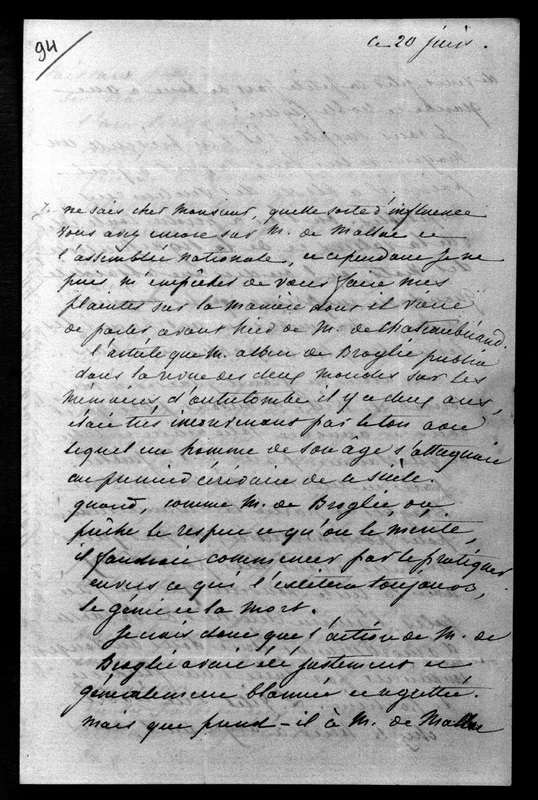 94
ce 20 juin.
Je ne sais cher Monsieur, quelle sorte d'influence
vous avez encore sur M. de Mallac et
l'assemblée nationale, et cependant je ne
puis m'empêcher de vous faire mes
plaintes sur la manière dont il vient
de parler avant hier de M. de chateaubriand.
l'article que M. albert de Broglie publia
dans la revue des deux mondes sur les
mémoires d'outretombe il y a deux ans,
était très inconvenant par le ton avec
lequel un homme de son âge s'attaquait
au premier écrivain de ce siècle.
quand, comme M. de Broglie, on
prêche le respect et qu'on le mérite,
il faudrait commencer par le pratiquer
envers ce qui l'excitera toujours,
le génie et la mort.
Je crois donc que l'article de M. de
Broglie avait été justement et
généralement blamé et
mais que prend-il à M. de